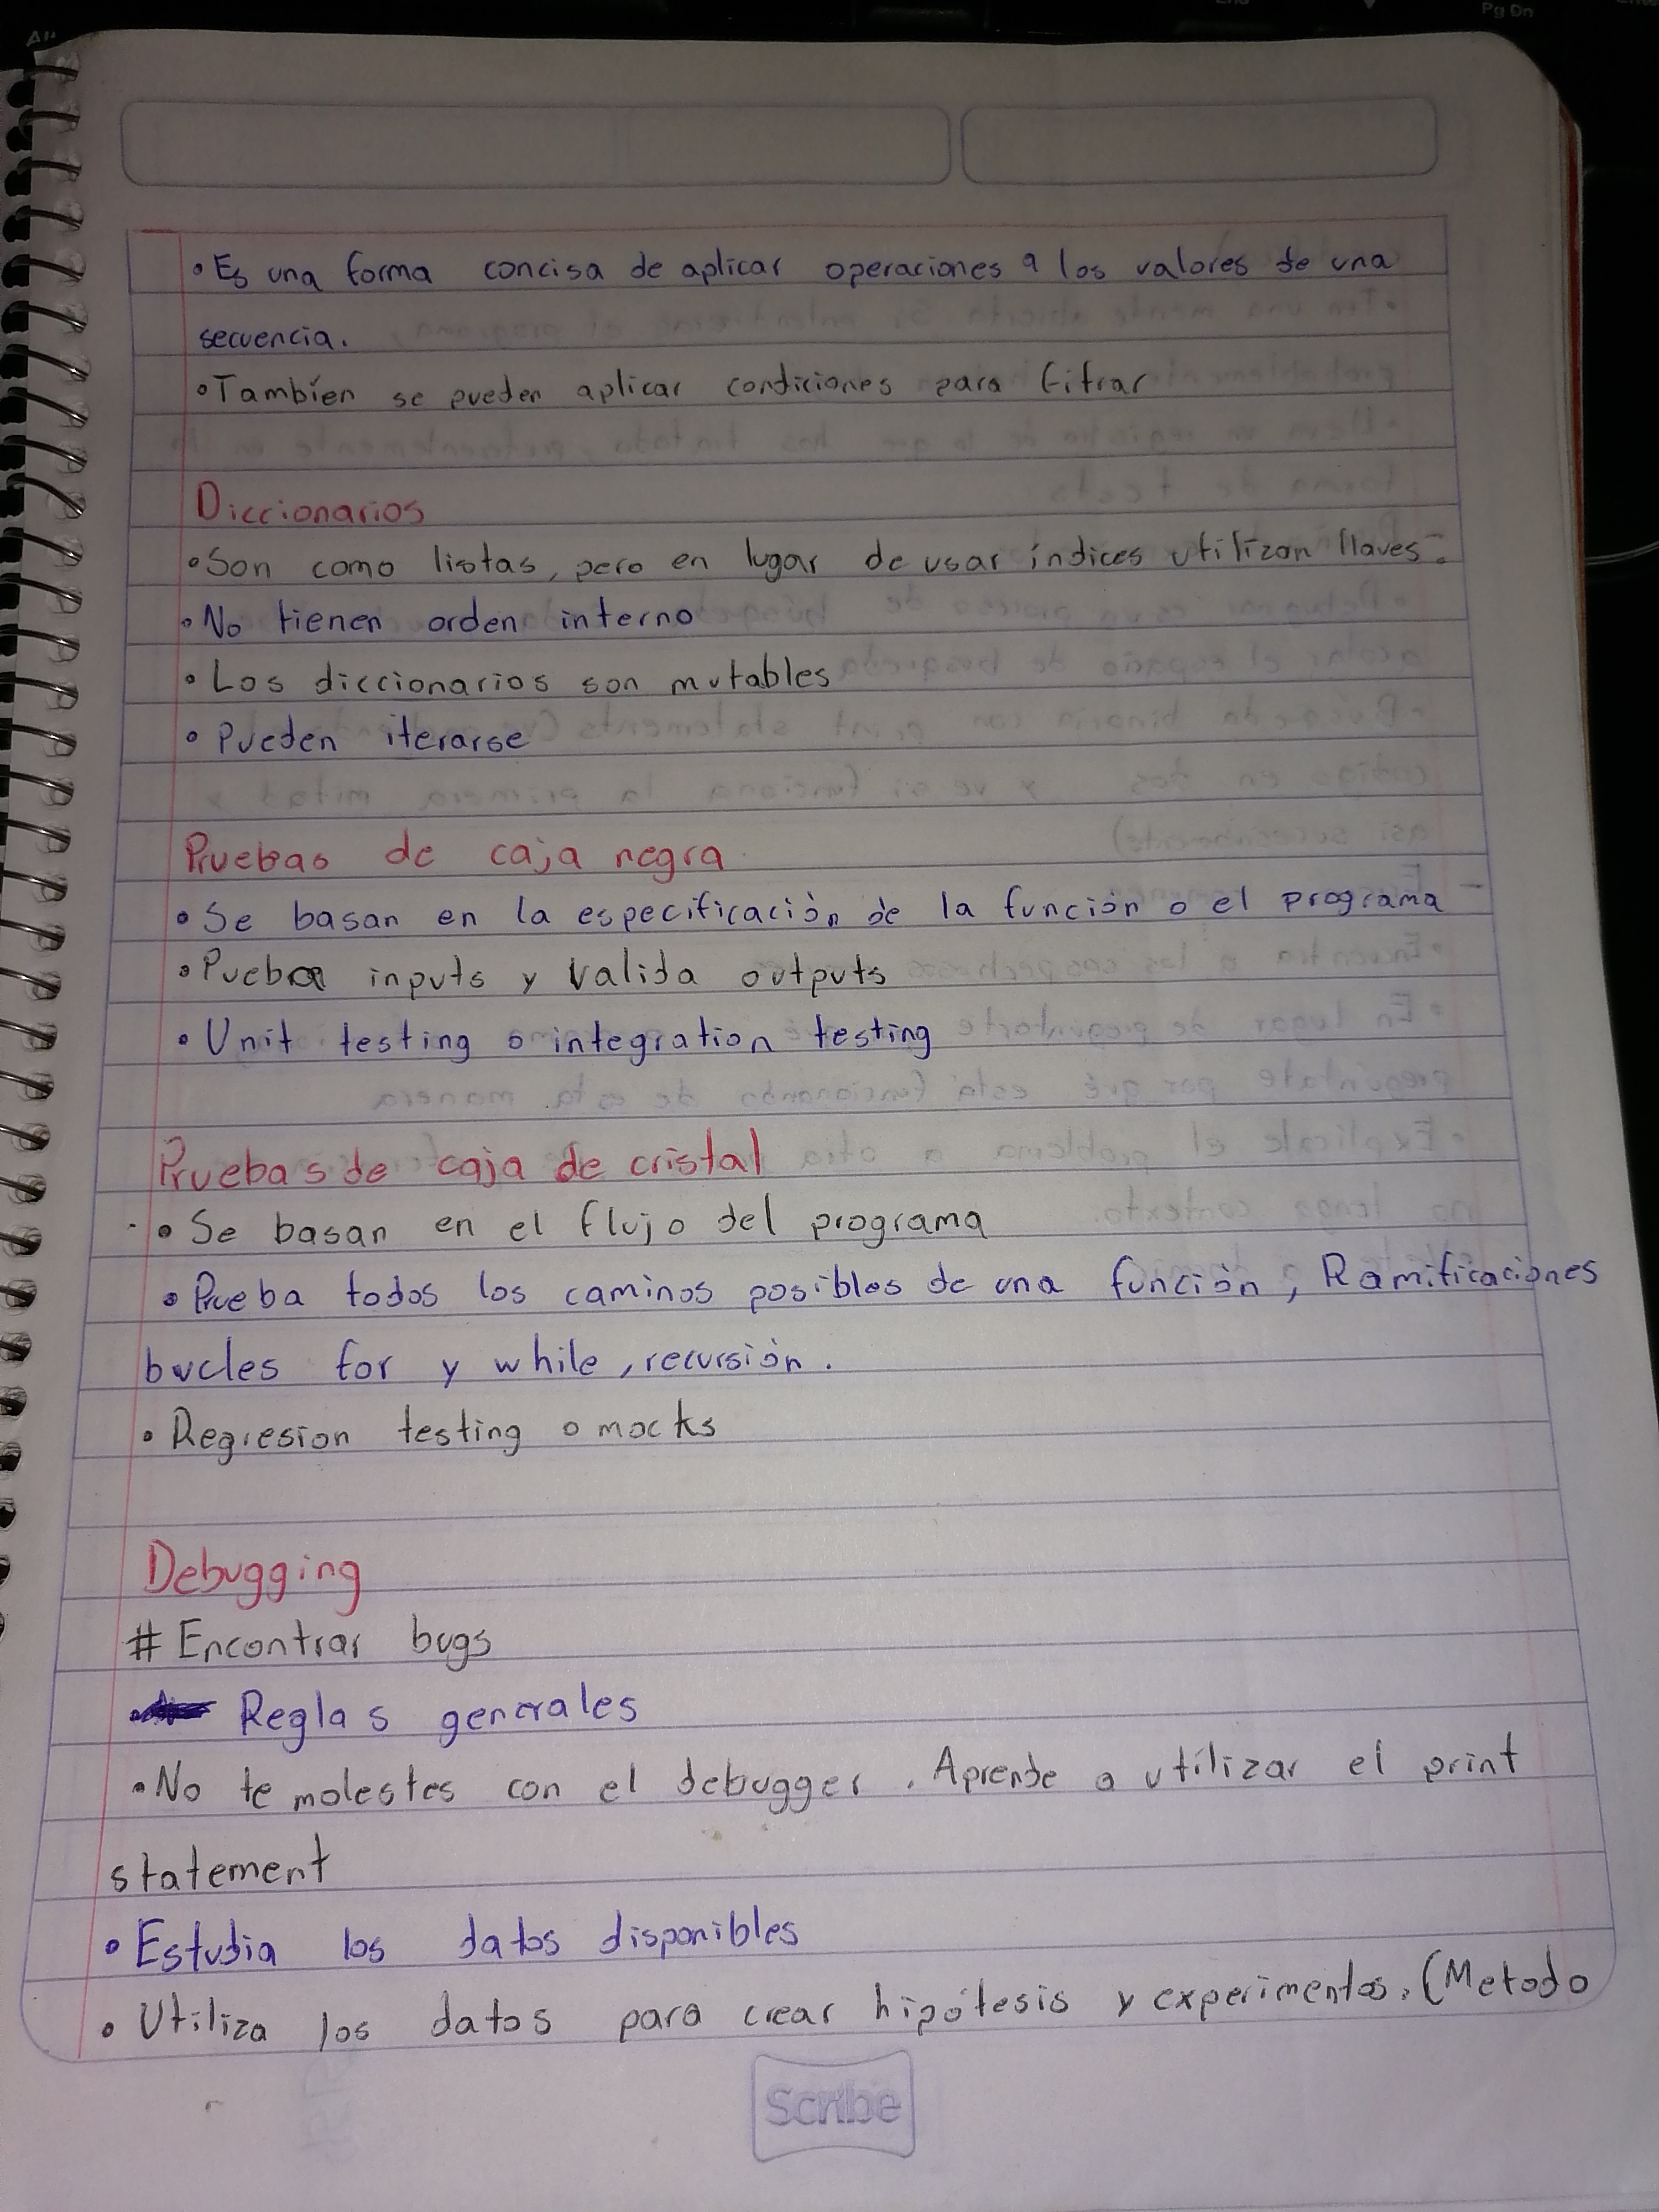 • Es una forma concisa de aplicar operaciones a los valores de una
secuencia.
• Tambíen se pueden aplicar condiciones para
Diccionarios
• Son como listas, pero en lugar de usar índices utilizan llaves.
• No tienen orden interno
• Los diccionarios son mutables
• Pueden iterarse
Pruebas de caja negra
• Se basan en la especificación de la función o el programa
• inputs y valida outputs
• Unit testing o integration testing
Pruebas de caja de cristal
• Se basan en el flujo del programa
• Prueba todos los caminos posibles de una función, Ramificaciones
bucles for y while, recursión.
• Regresion testing o mocks
Debugging
# Encontrar bugs
Reglas generales
• No te molestes con el debugger. Aprende a utilizar el print
statement
• Estudia los datos disponibles
• Utiliza los datos para crear hipótesis y experimentos. (Metodo
Scribe
Pg Dn